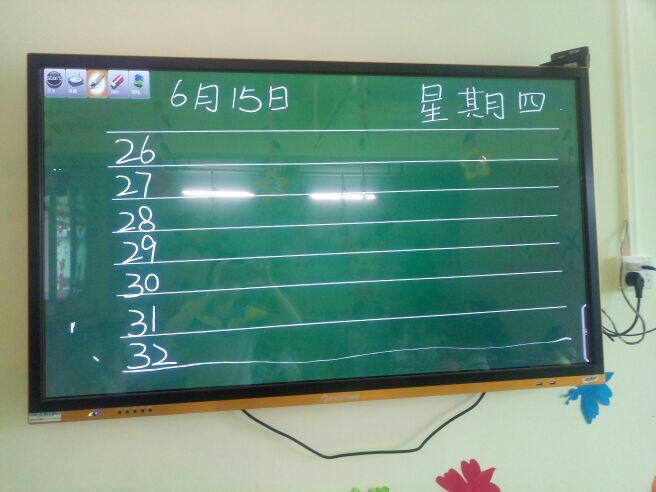 6月15日 星期四
26
27
28
29
30
31
32